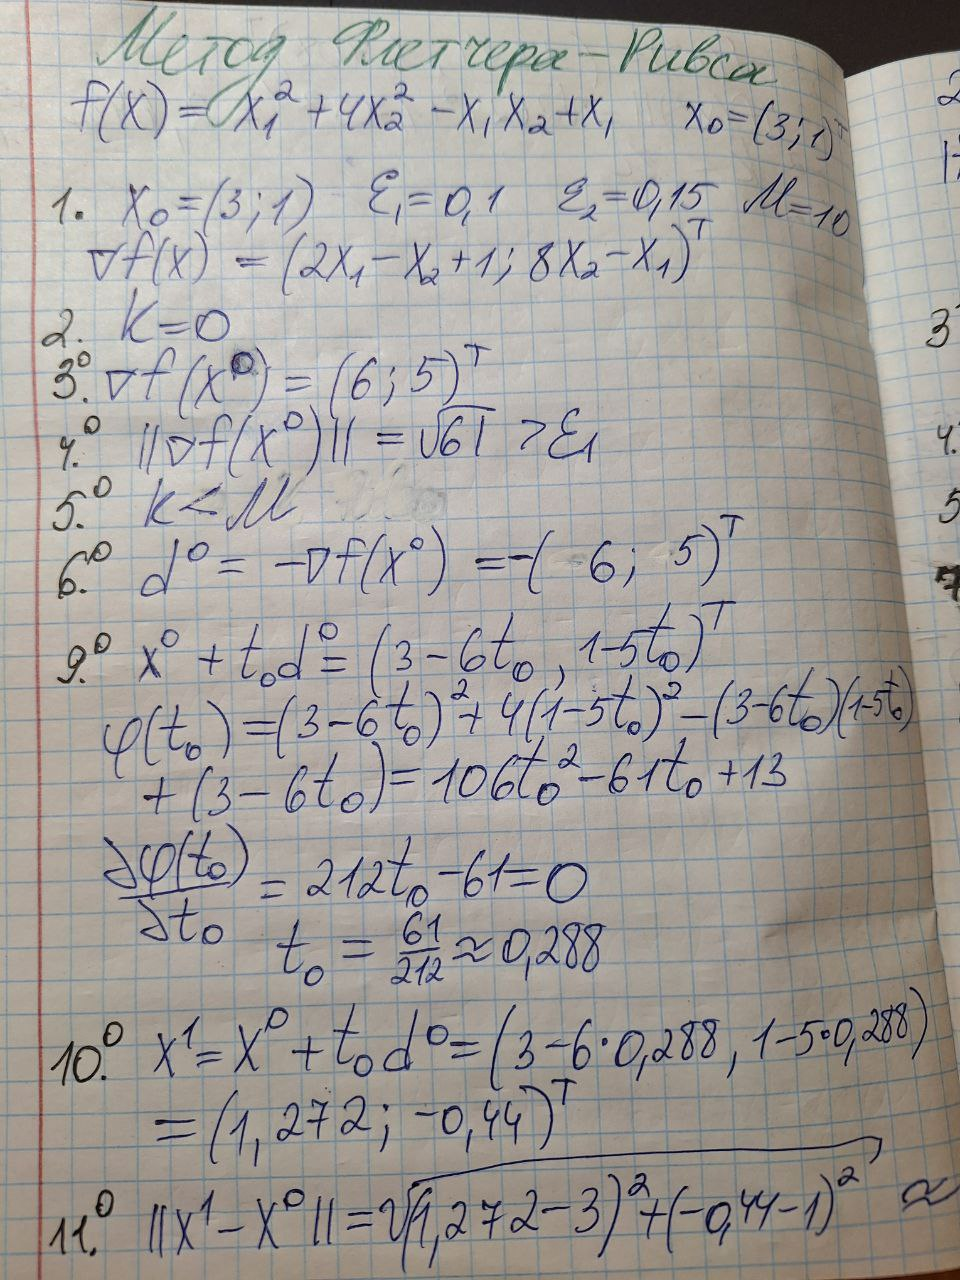 Метод Флетчера-Ривса
f(x) = x₁² + 4x₂² - x₁x₂ + x₁   x₀ = (3; 1)ᵀ
1. x₀ = (3; 1)   ℰ₁ = 0,1   ℰ₂ = 0,15   M = 10
∇f(x) = (2x₁ - x₂ + 1; 8x₂ - x₁)ᵀ
2. k = 0
3.⁰ ∇f(x⁰) = (6; 5)ᵀ
4.⁰ ||∇f(x⁰)|| = √61 > ℰ₁
5.⁰ k < M
6.⁰ d⁰ = -∇f(x⁰) = -(6; 5)ᵀ
9.⁰ x⁰ + t₀d⁰ = (3 - 6t₀, 1 - 5t₀)ᵀ
φ(t₀) = (3 - 6t₀)² + 4(1 - 5t₀)² - (3 - 6t₀)(1 - 5t₀)
+ (3 - 6t₀) = 106t₀² - 61t₀ + 13
∂φ(t₀)/∂t₀ = 212t₀ - 61 = 0
t₀ = 61/212 ≈ 0,288
10.⁰ x¹ = x⁰ + t₀d⁰ = (3 - 6·0,288, 1 - 5·0,288)
= (1,272; -0,44)ᵀ
11.⁰ ||x¹ - x⁰|| = √((1,272 - 3)² + (-0,44 - 1)²) ≈